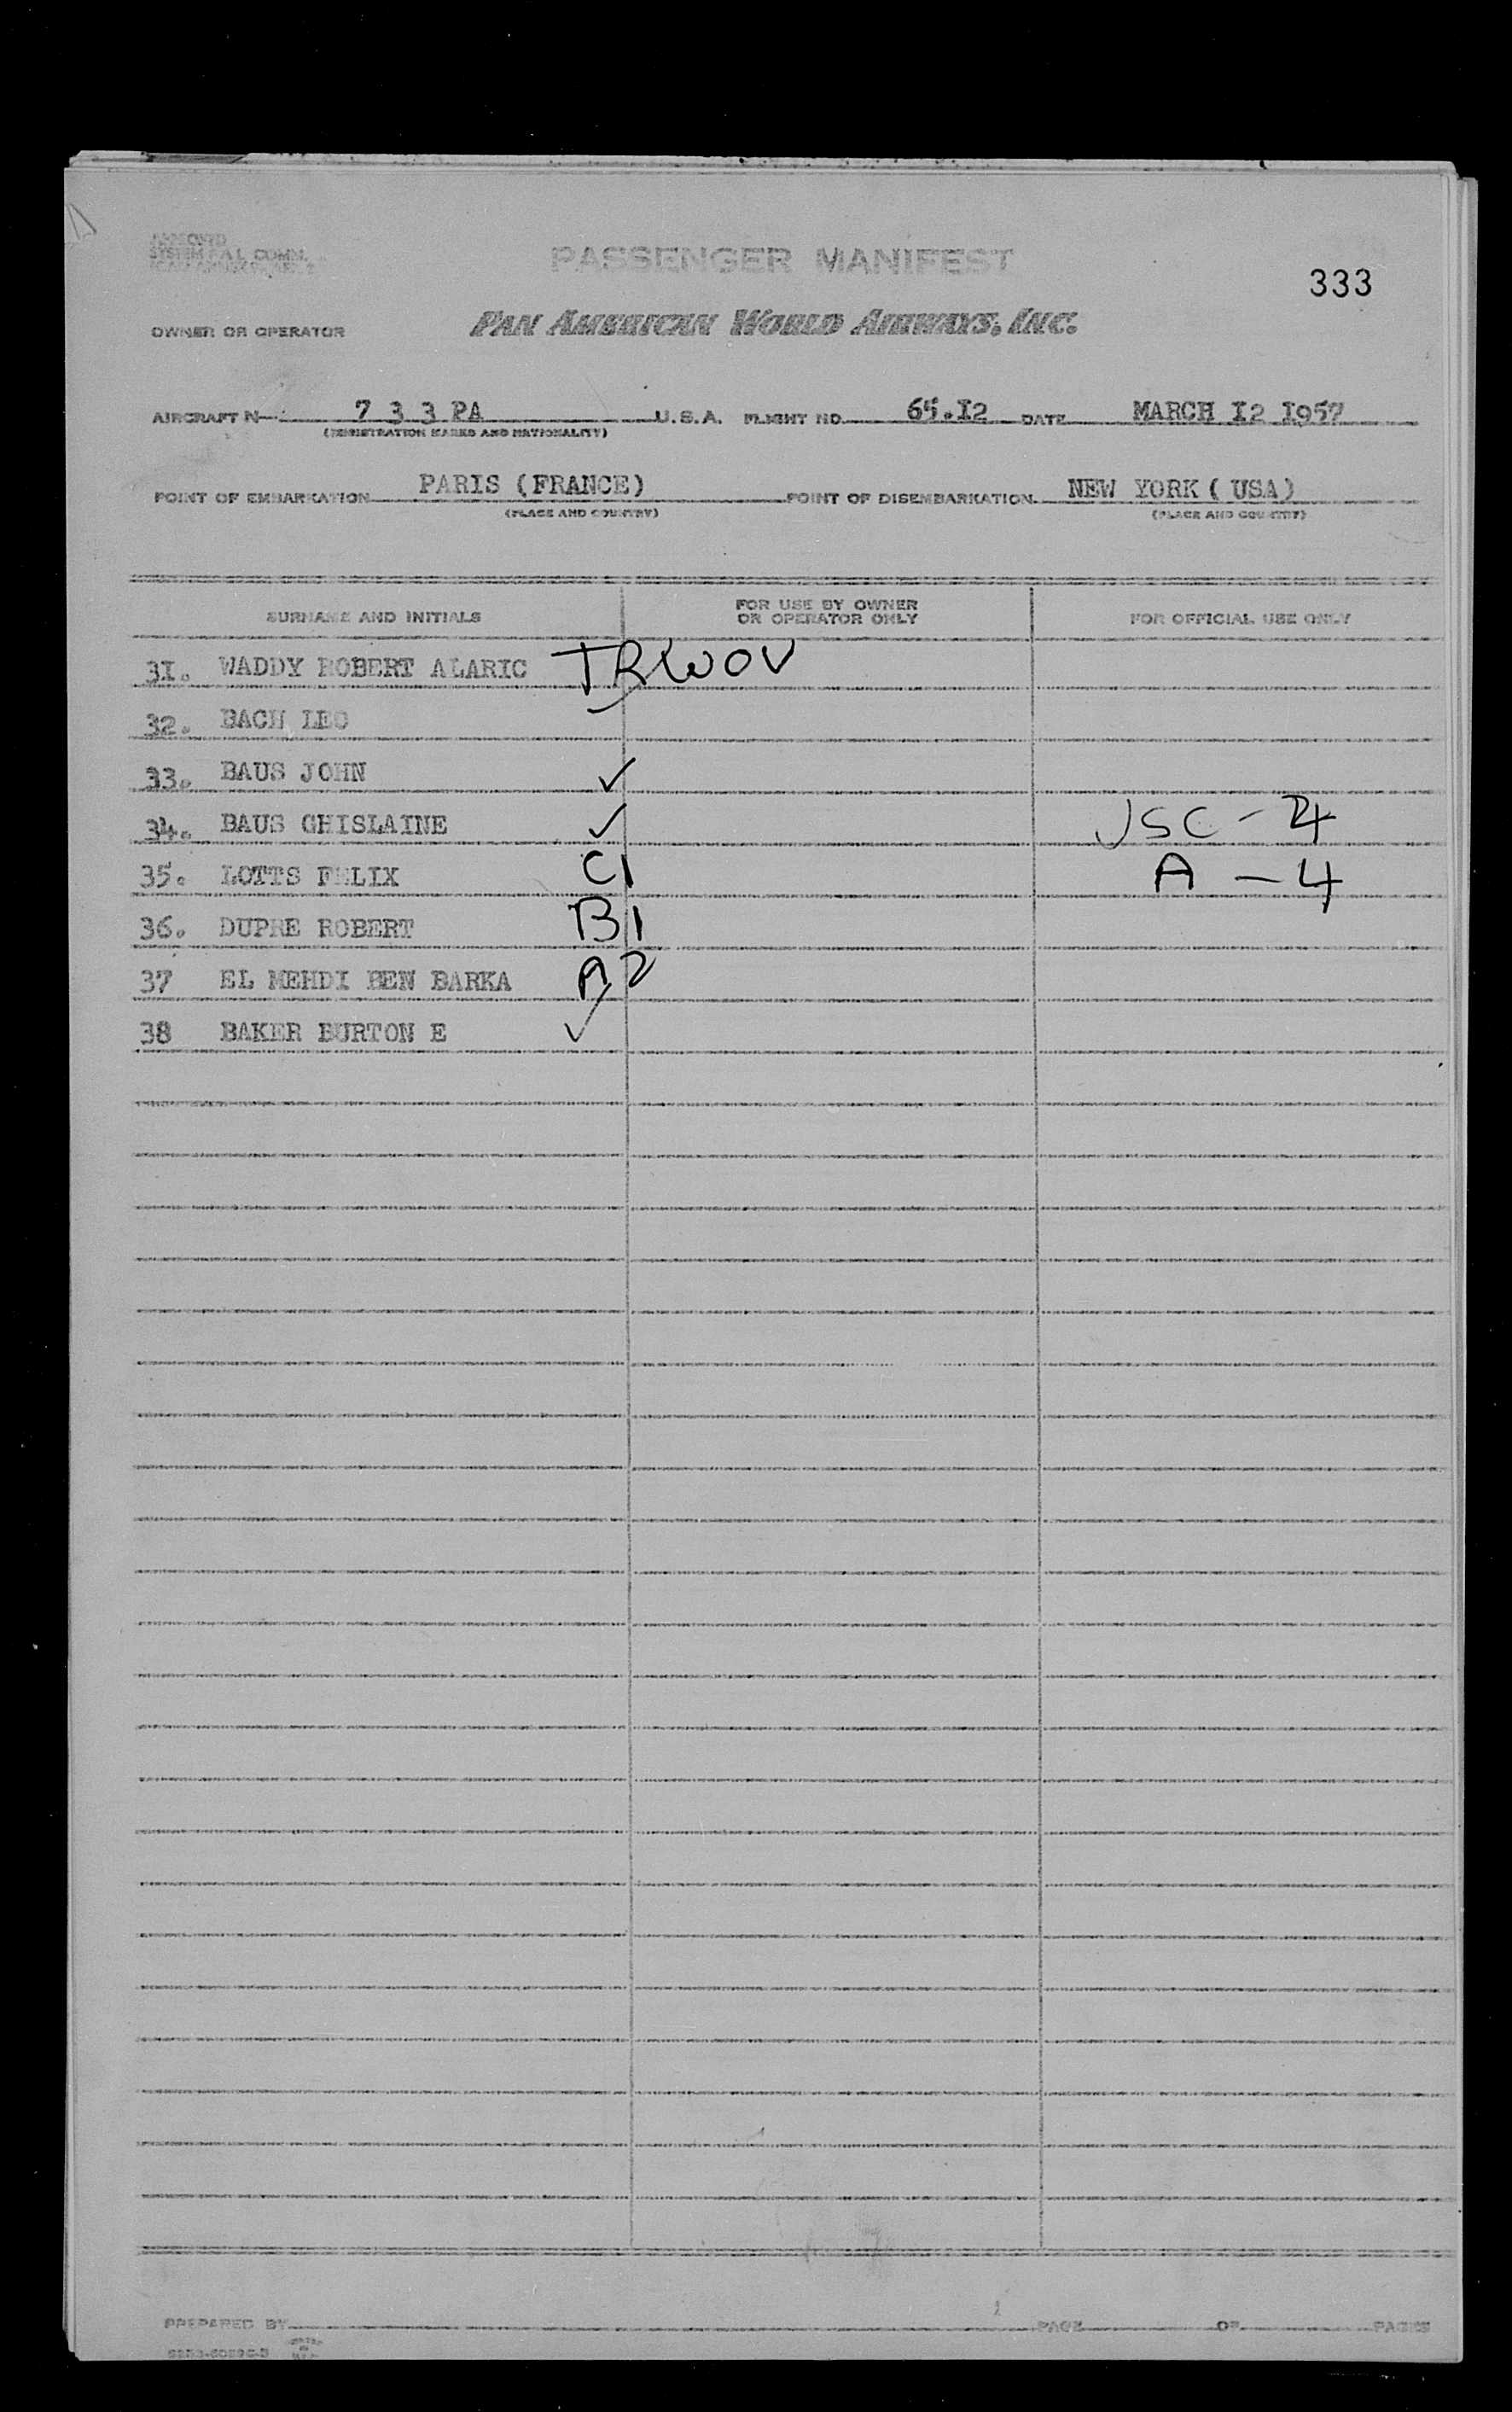 SYSTEM F.A.L. COMM.
PASSENGER MANIFEST
333
OWNER OR OPERATOR PAN AMERICAN WORLD AIRWAYS, INC.
AIRCRAFT N— 7 3 3 PA U.S.A. FLIGHT NO. 65.I2 DATE MARCH I2 I957
(REGISTRATION MARKS AND NATIONALITY)
POINT OF EMBARKATION PARIS (FRANCE) POINT OF DISEMBARKATION NEW YORK ( USA)
(PLACE AND COUNTRY) (PLACE AND COUNTRY)
SURNAME AND INITIALS FOR USE BY OWNER OR OPERATOR ONLY FOR OFFICIAL USE ONLY
3I. WADDY ROBERT ALARIC TRWOV
32. BACH LEO
33. BAUS JOHN ✓
34. BAUS GHISLAINE ✓ USC - 4
35. LOTTS FELIX C1 A - 4
36. DUPRE ROBERT B1
37 EL MEHDI BEN BARKA A2
38 BAKER BURTON E ✓
PREPARED BY PAGE OF PAGES